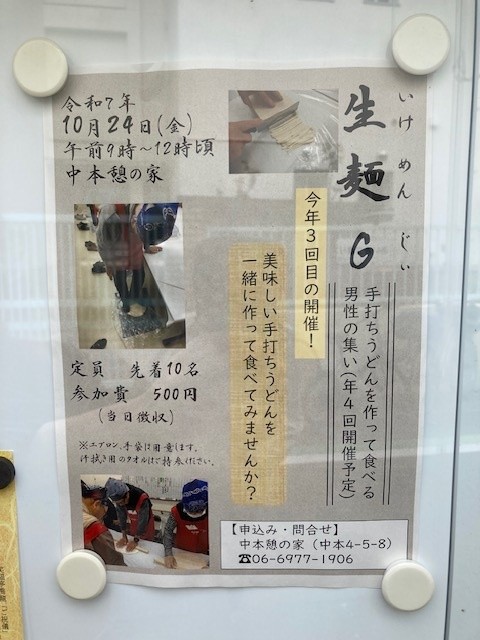 いけめん じぃ
生麺G
手打ちうどんを作って食べる
男性の集い(年4回開催予定)
今年3回目の開催!
美味しい手打ちうどんを
一緒に作って食べてみませんか?
令和7年
10月24日(金)
午前9時~12時頃
中本憩の家
定員 先着10名
参加費 500円
(当日徴収)
※エプロン、手袋は用意します。
汗拭き用のタオルはご持参ください。
【申込み・問合せ】
中本憩の家(中本4-5-8)
☎06-6977-1906